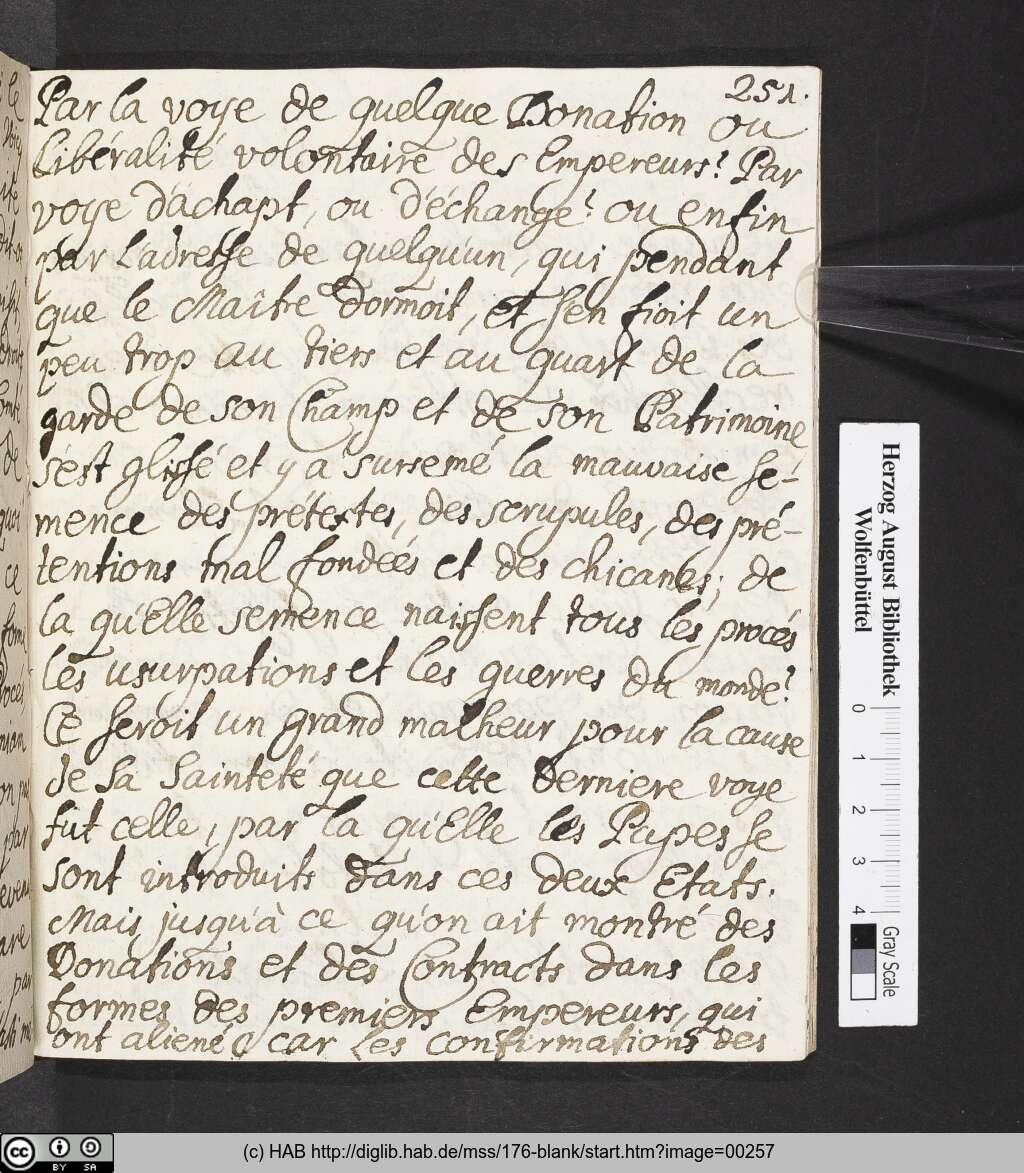 251.
Par la voye de quelque Donation ou
Libéralité volontaire des Empereurs? Par
voye d'achapt, ou d'échange? ou enfin
par L'adresse de quelqu'un, qui pendant
que le Maître dormoit, et s'en fioit un
peu trop au tiers et au quart de la
garde de son Champ et de son Patrimoine
s'est glissé et y a sursemé la mauvaise se-
mence des prétextes, des scrupules, des pré-
tentions mal fondées et des chicanes; de
la qu'Elle semence naissent tous les procés
les usurpations et les guerres du monde?
Ce seroit un grand malheur pour la cause
de sa Sainteté que cette derniere voye
fut celle, par la qu'Elle les Papes se
sont introduits dans ces deux Etats.
Mais jusqu'à ce qu'on ait montré des
Donations et des Contracts dans les
formes des premiers Empereurs, qui
ont aliené (car les confirmations des
Herzog August Bibliothek
Wolfenbüttel
0 1 2 3 4
Gray Scale
cc BY SA
(c) HAB http://diglib.hab.de/mss/176-blank/start.htm?image=00257